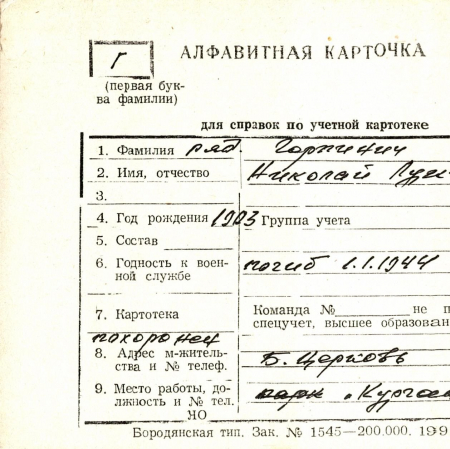 Г
АЛФАВИТНАЯ КАРТОЧКА
(первая бук-
ва фамилии)
для справок по учетной картотеке
1. Фамилия ряд
2. Имя, отчество Николай
3.
4. Год рождения 1903 Группа учета
5. Состав
6. Годность к воен- погиб 1.1.1944
ной службе
7. Картотека Команда № не п
спецучет, высшее образован
похоронен
8. Адрес м-житель- Б. Церковь
ства и № телеф.
9. Место работы, до- парк „Курган
лжность и № тел.
НО
Бородянская тип. Зак. № 1545—200.000. 199